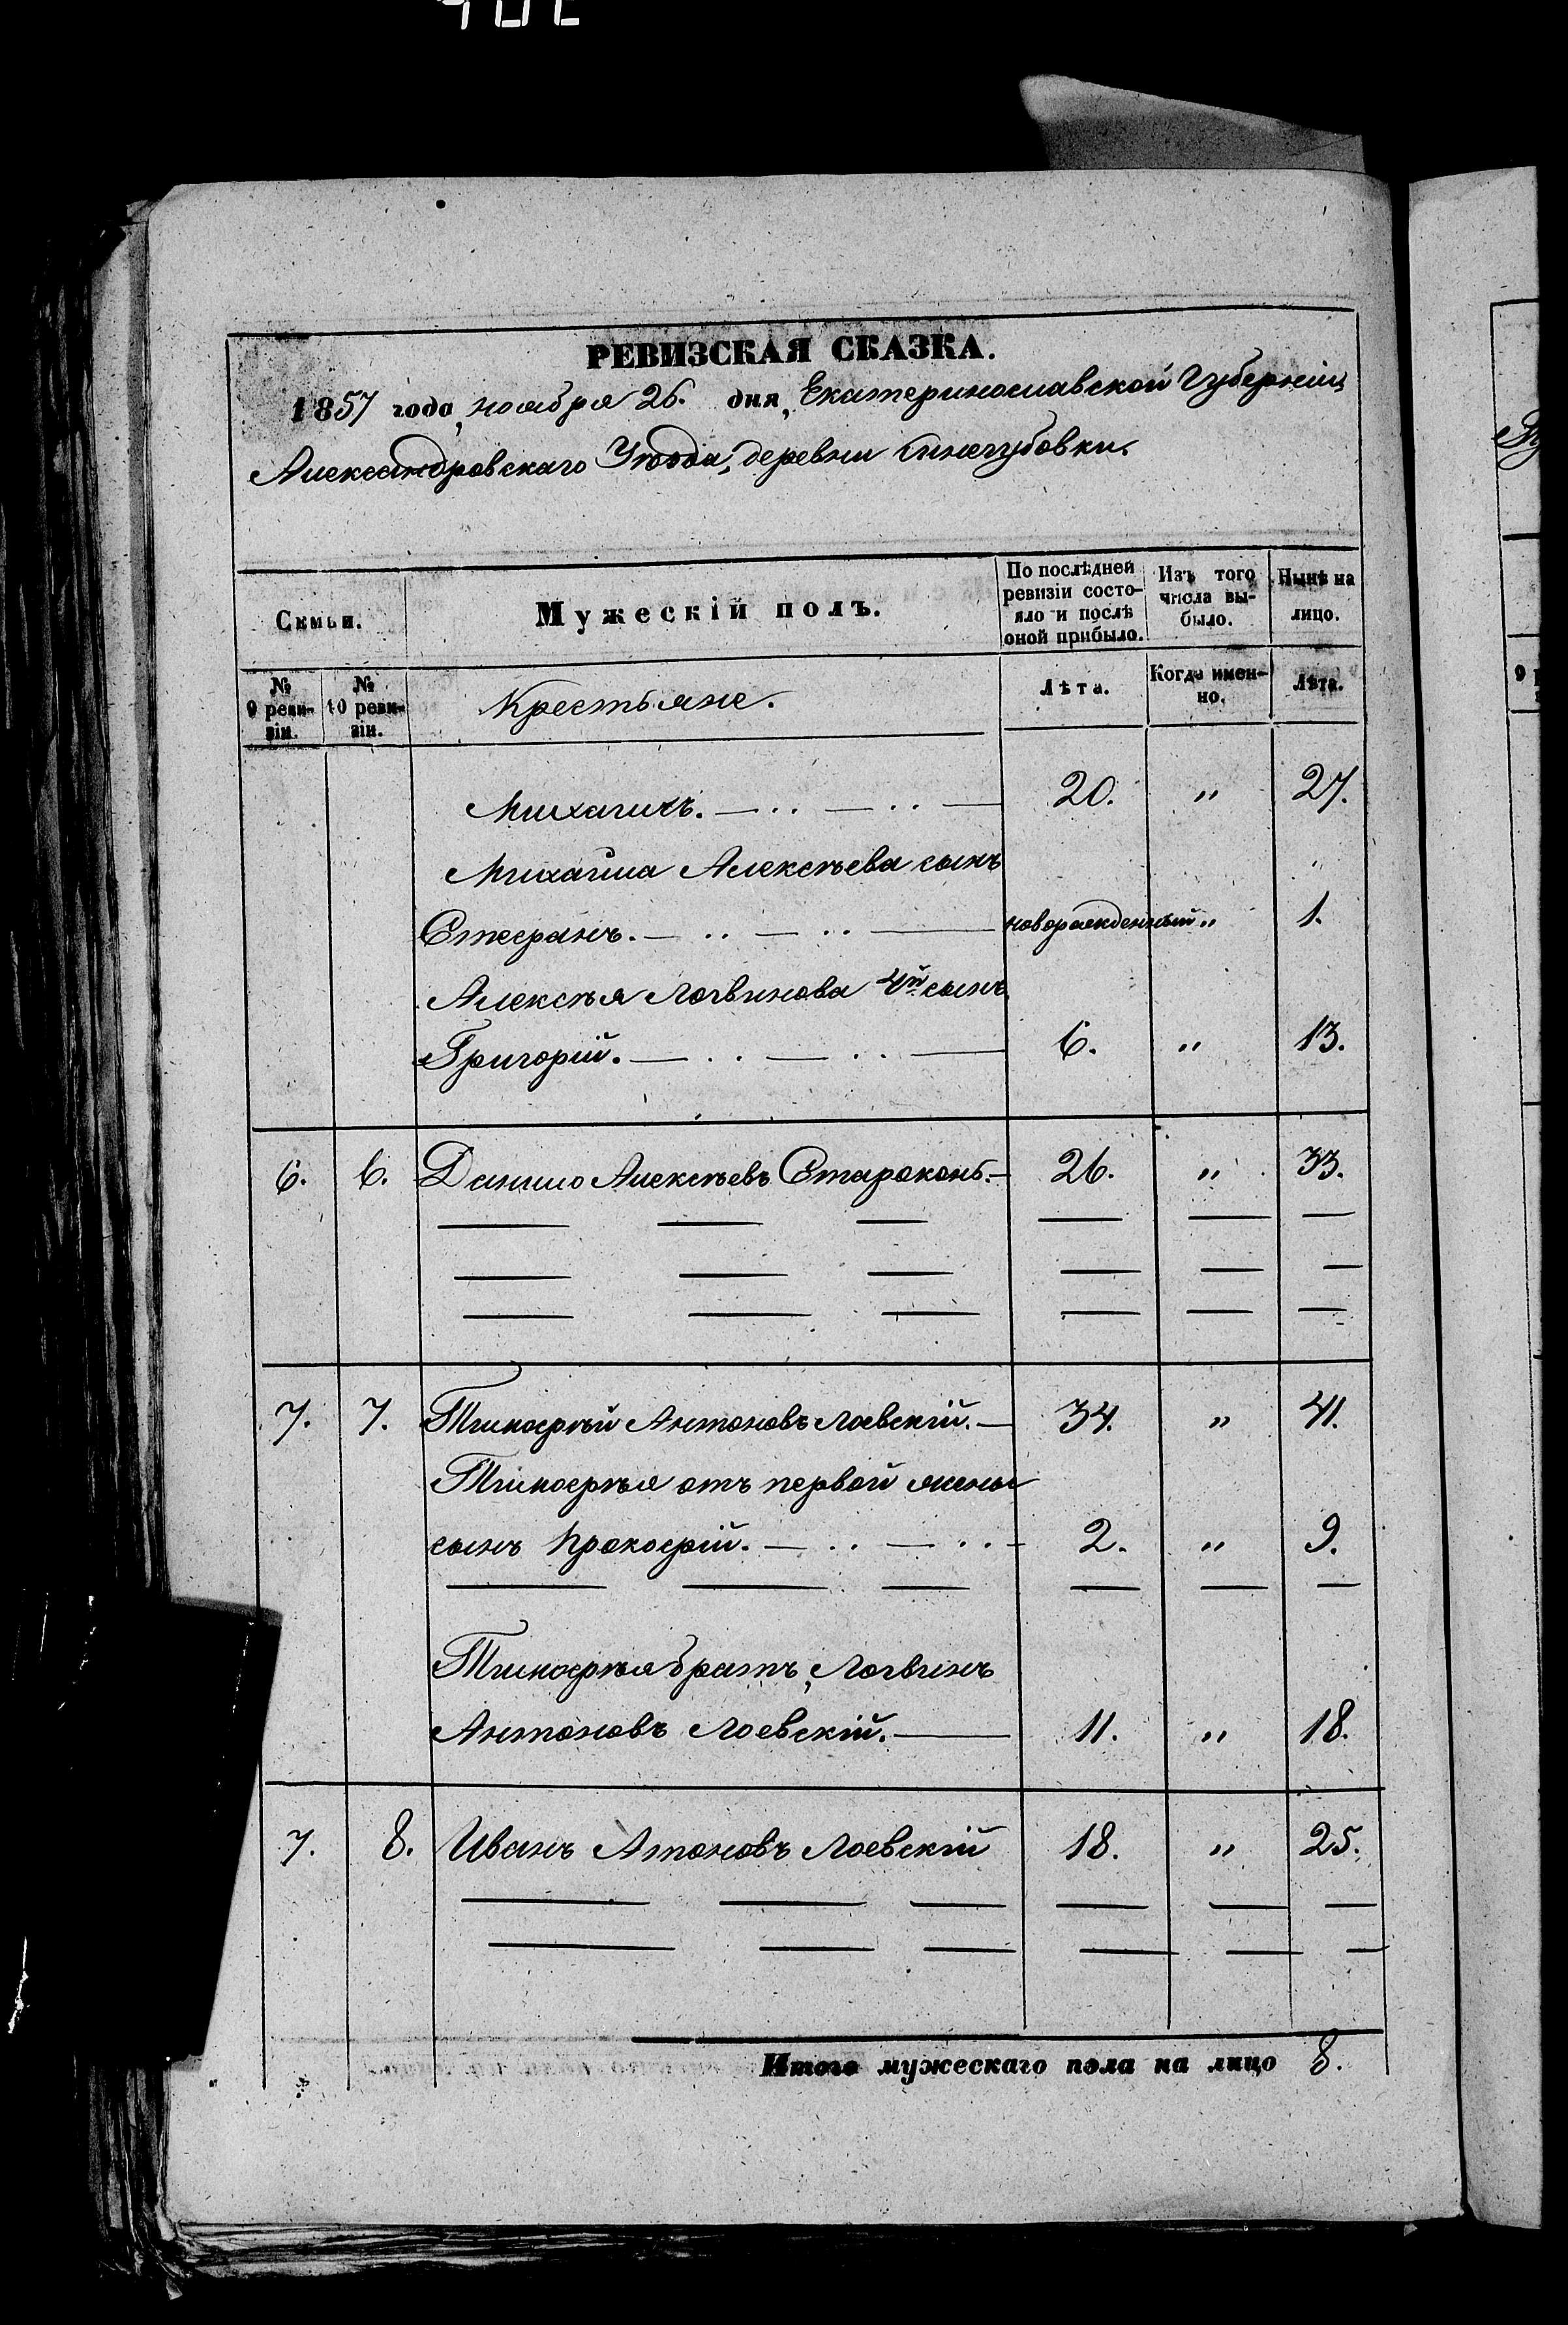 РЕВИЗСКАЯ СКАЗКА.
1857 года, ноября 26. дня, Екатеринославской Губерніи,
Александровскаго Уѣзда, деревни Синегубовки.
Семьи.
Мужескій полъ.
По послѣдней ревизіи состояло и послѣ оной прибыло.
Изъ того числа выбыло.
Нынѣ на лицо.
№ 9 ревизіи.
№ 10 ревизіи.
Крестьяне.
Лѣта.
Когда именно.
Лѣта.
Михаилъ. 20. " 27.
Михаила Алексѣева сынъ
Стефанъ. новорожденный " 1.
Алексѣя Логвинова 4й сынъ
Григорій. 6. " 13.
6. 6. Данило Алексѣевъ Староконь. 26. " 33.
7. 7. Тимофѣй Антоновъ Лоевскій. 34. " 41.
Тимофѣя отъ первой жены
сынъ Прокофій. 2. " 9.
Тимофѣя братъ, Логвинъ
Антоновъ Лоевскій. 11. " 18.
7. 8. Иванъ Атоновъ Лоевскій 18. " 25.
Итого мужескаго пола на лицо 8.